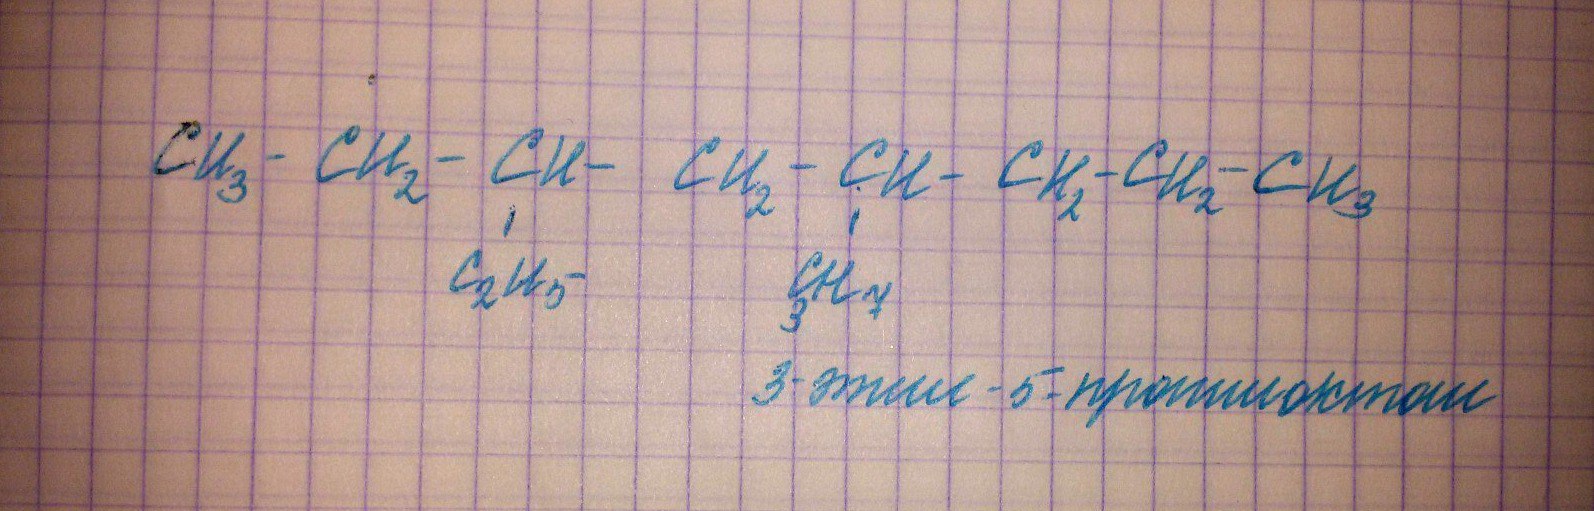 CH₃ - CH₂ - CH - CH₂ - CH - CH₂ - CH₂ - CH₃
C₂H₅ C₃H₇
3-этил-5-пропилоктан